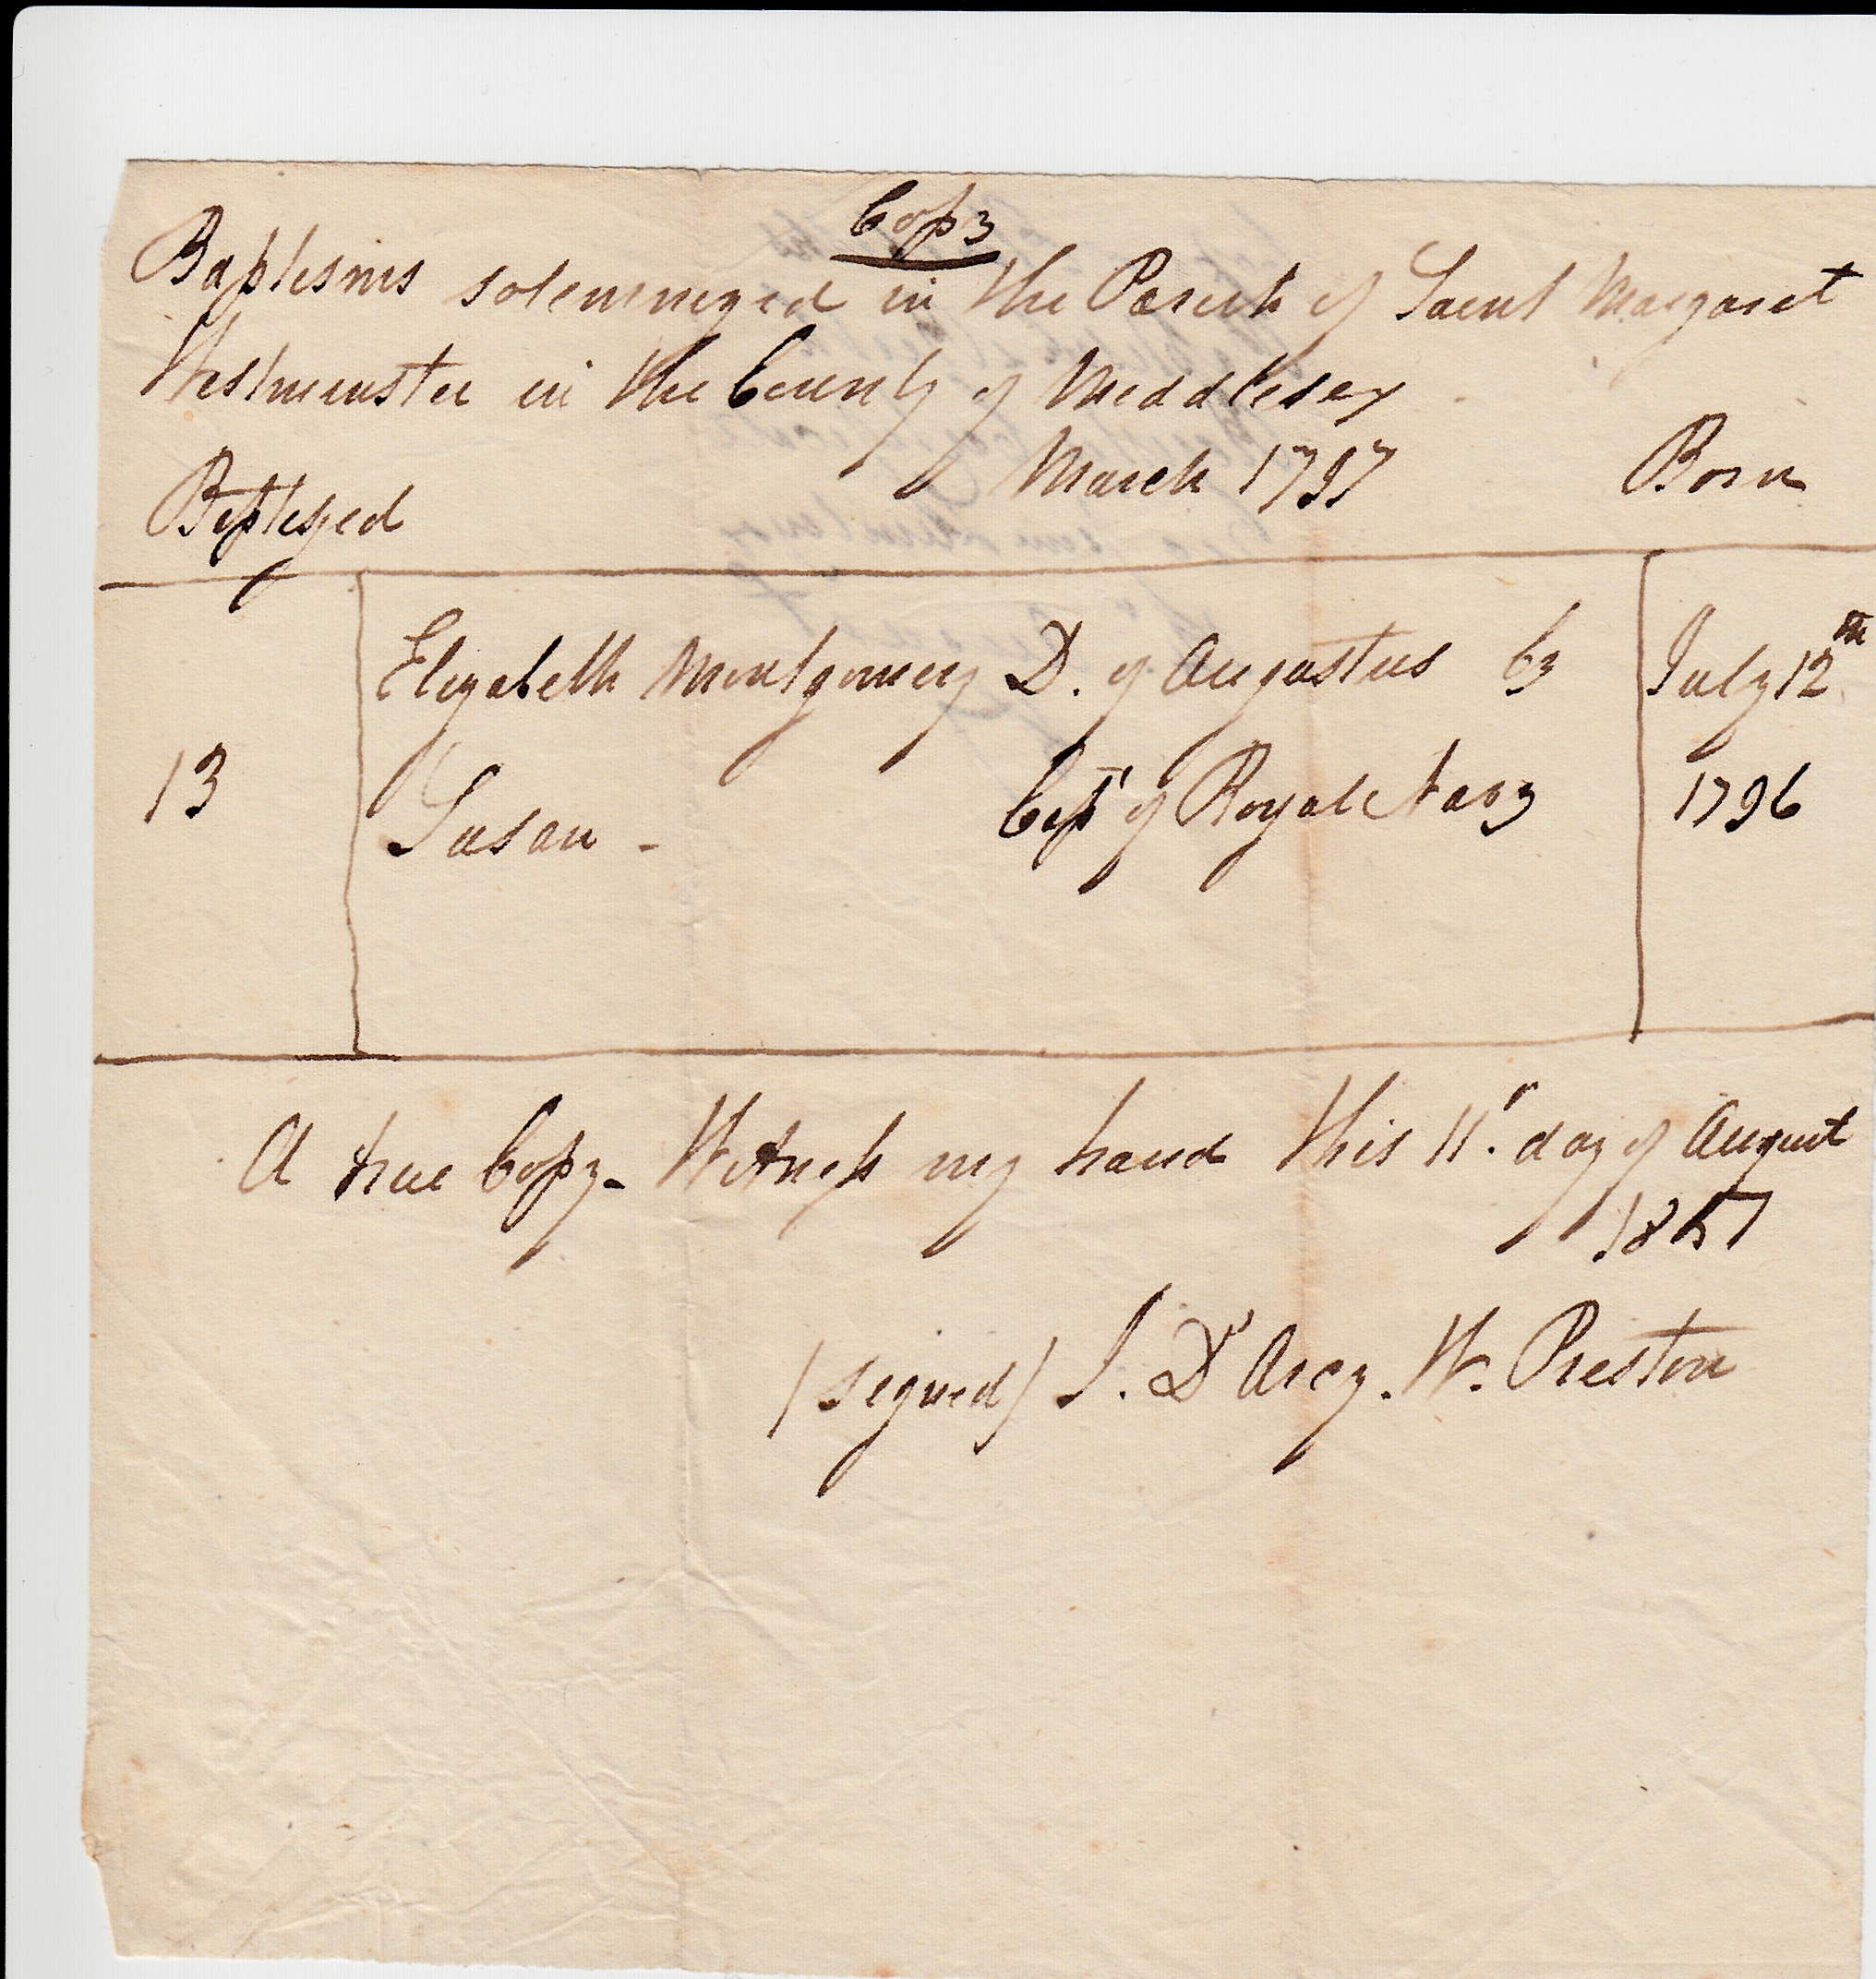 Copy
Baptisms solemnized in the Parish of Saint Margaret
Westminster in the County of Middlesex
March 1797
Baptized Born
Elizabeth Montgomery D. of Augustus by July 12th
13 Susan - Capt of Royal Navy 1796
A true Copy - Witness my hand this 11th day of August
(signed) J. D'Arcy. W. Preston